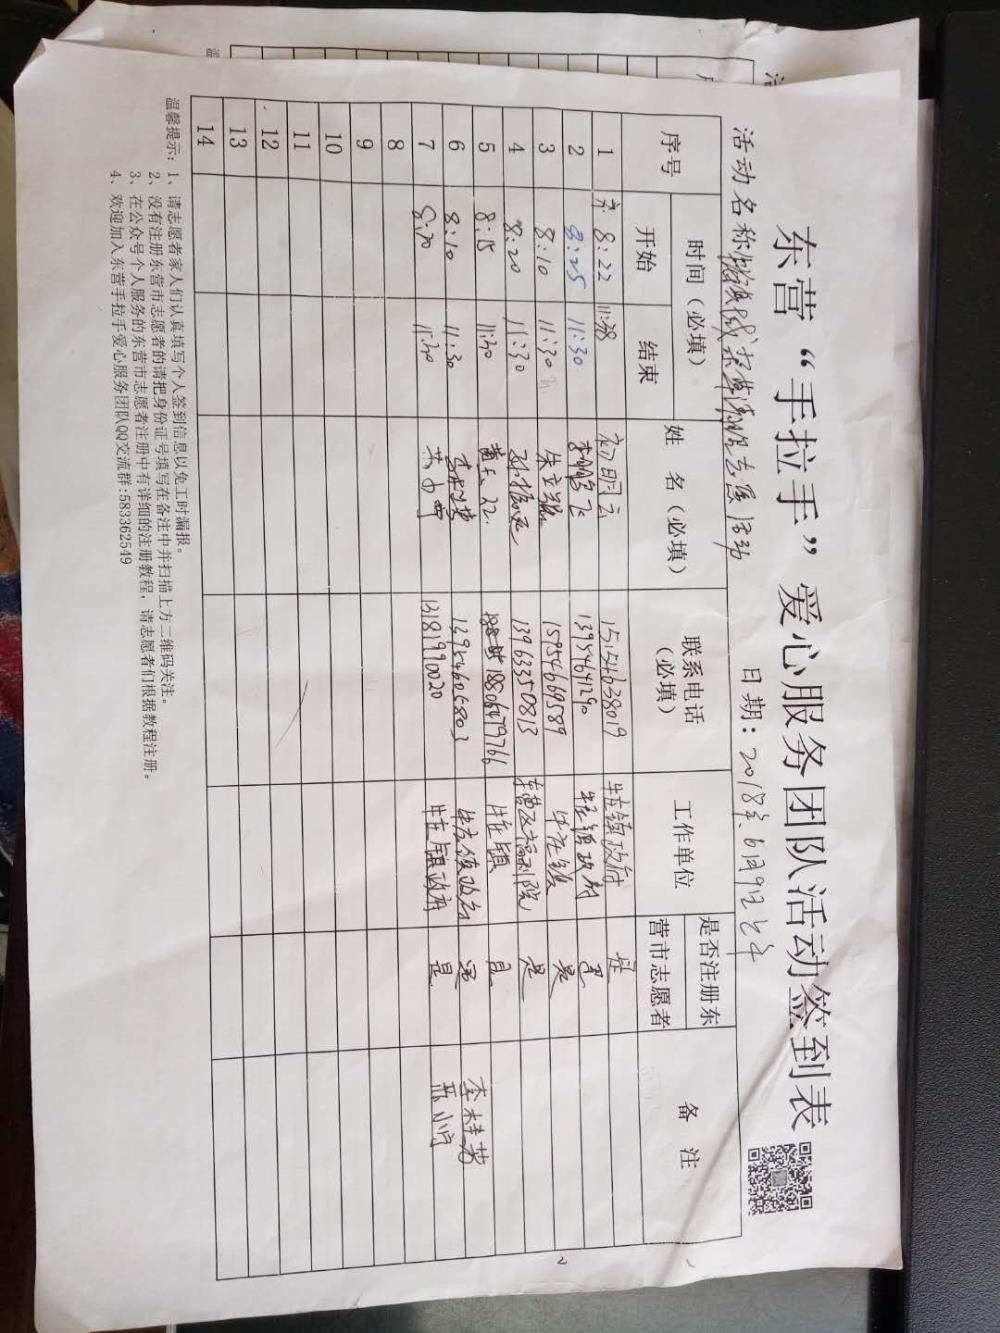 东营“手拉手”爱心服务团队活动签到表
活动名称 志愿活动 日期：2018年6月9日上午
序号 时间（必填） 姓 名（必填） 联系电话（必填） 工作单位 是否注册东营市志愿者 备 注
开始 结束
1 8:22 11:38 初明云 15154638019 牛庄镇政府 是
2 8:25 11:30 13954641290 牛庄镇政府 是
3 8:10 11:30 15954669589 牛庄镇 是
4 8:20 11:30 13963350813 东营区福利院 是
5 8:15 11:30 18806479766 牛庄镇 是
6 8:10 11:30 13954606803 牛庄镇政府 是 李桂芳
7 8:20 11:30 13181990020 牛庄镇政府 是
8
9
10
11
12
13
14
温馨提示：1、请志愿者家人们认真填写个人签到信息以免工时漏报。
2、没有注册东营市志愿者的请把身份证号填写在备注中并扫描上方二维码关注。
3、在公众号个人服务的东营市志愿者注册中有详细的注册教程，请志愿者们根据教程注册。
4、欢迎加入东营手拉手爱心服务团队QQ交流群:583362549